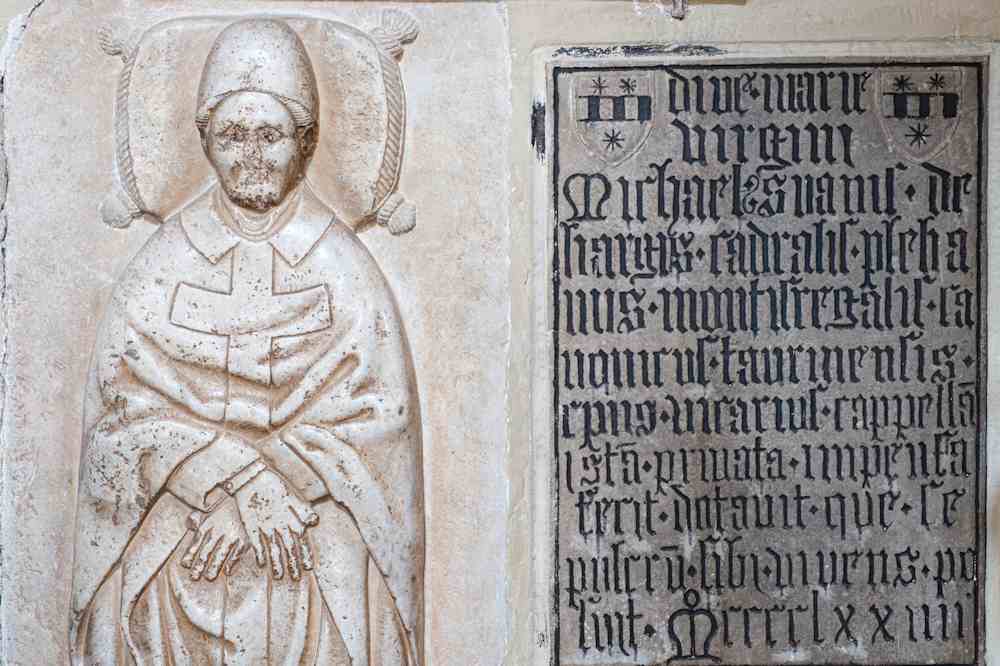 dive·marie
virgini
Michael Suanis·de
bargis·cadralis·pleba
nus·montisregalis·ca
nonicus·taurinensis·
epus·vicarius·cappellā
istā·privata·impensa
fecit·dotavit·que·se
pulcrū·sibi·vivens·po
suit·Mcccclxxiiii